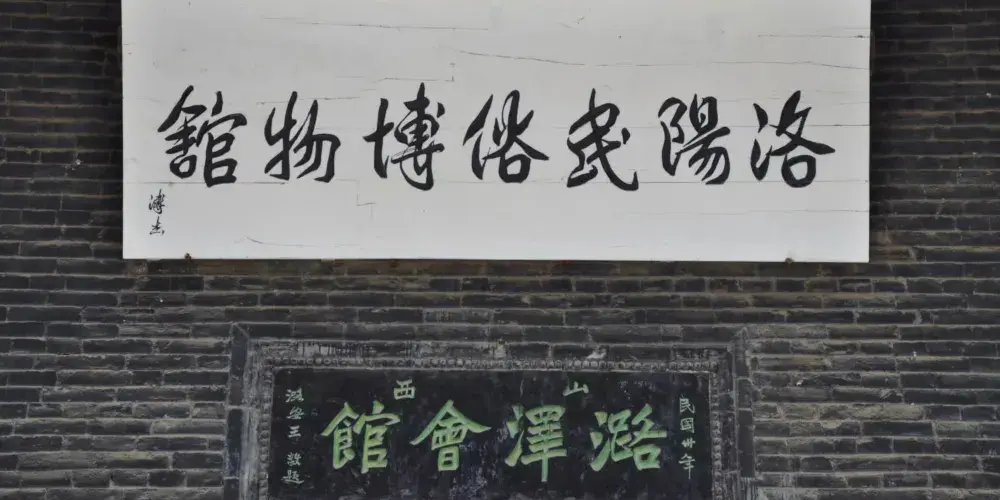 洛陽民俗博物館
溥杰
山西
潞澤會館
民国卅年